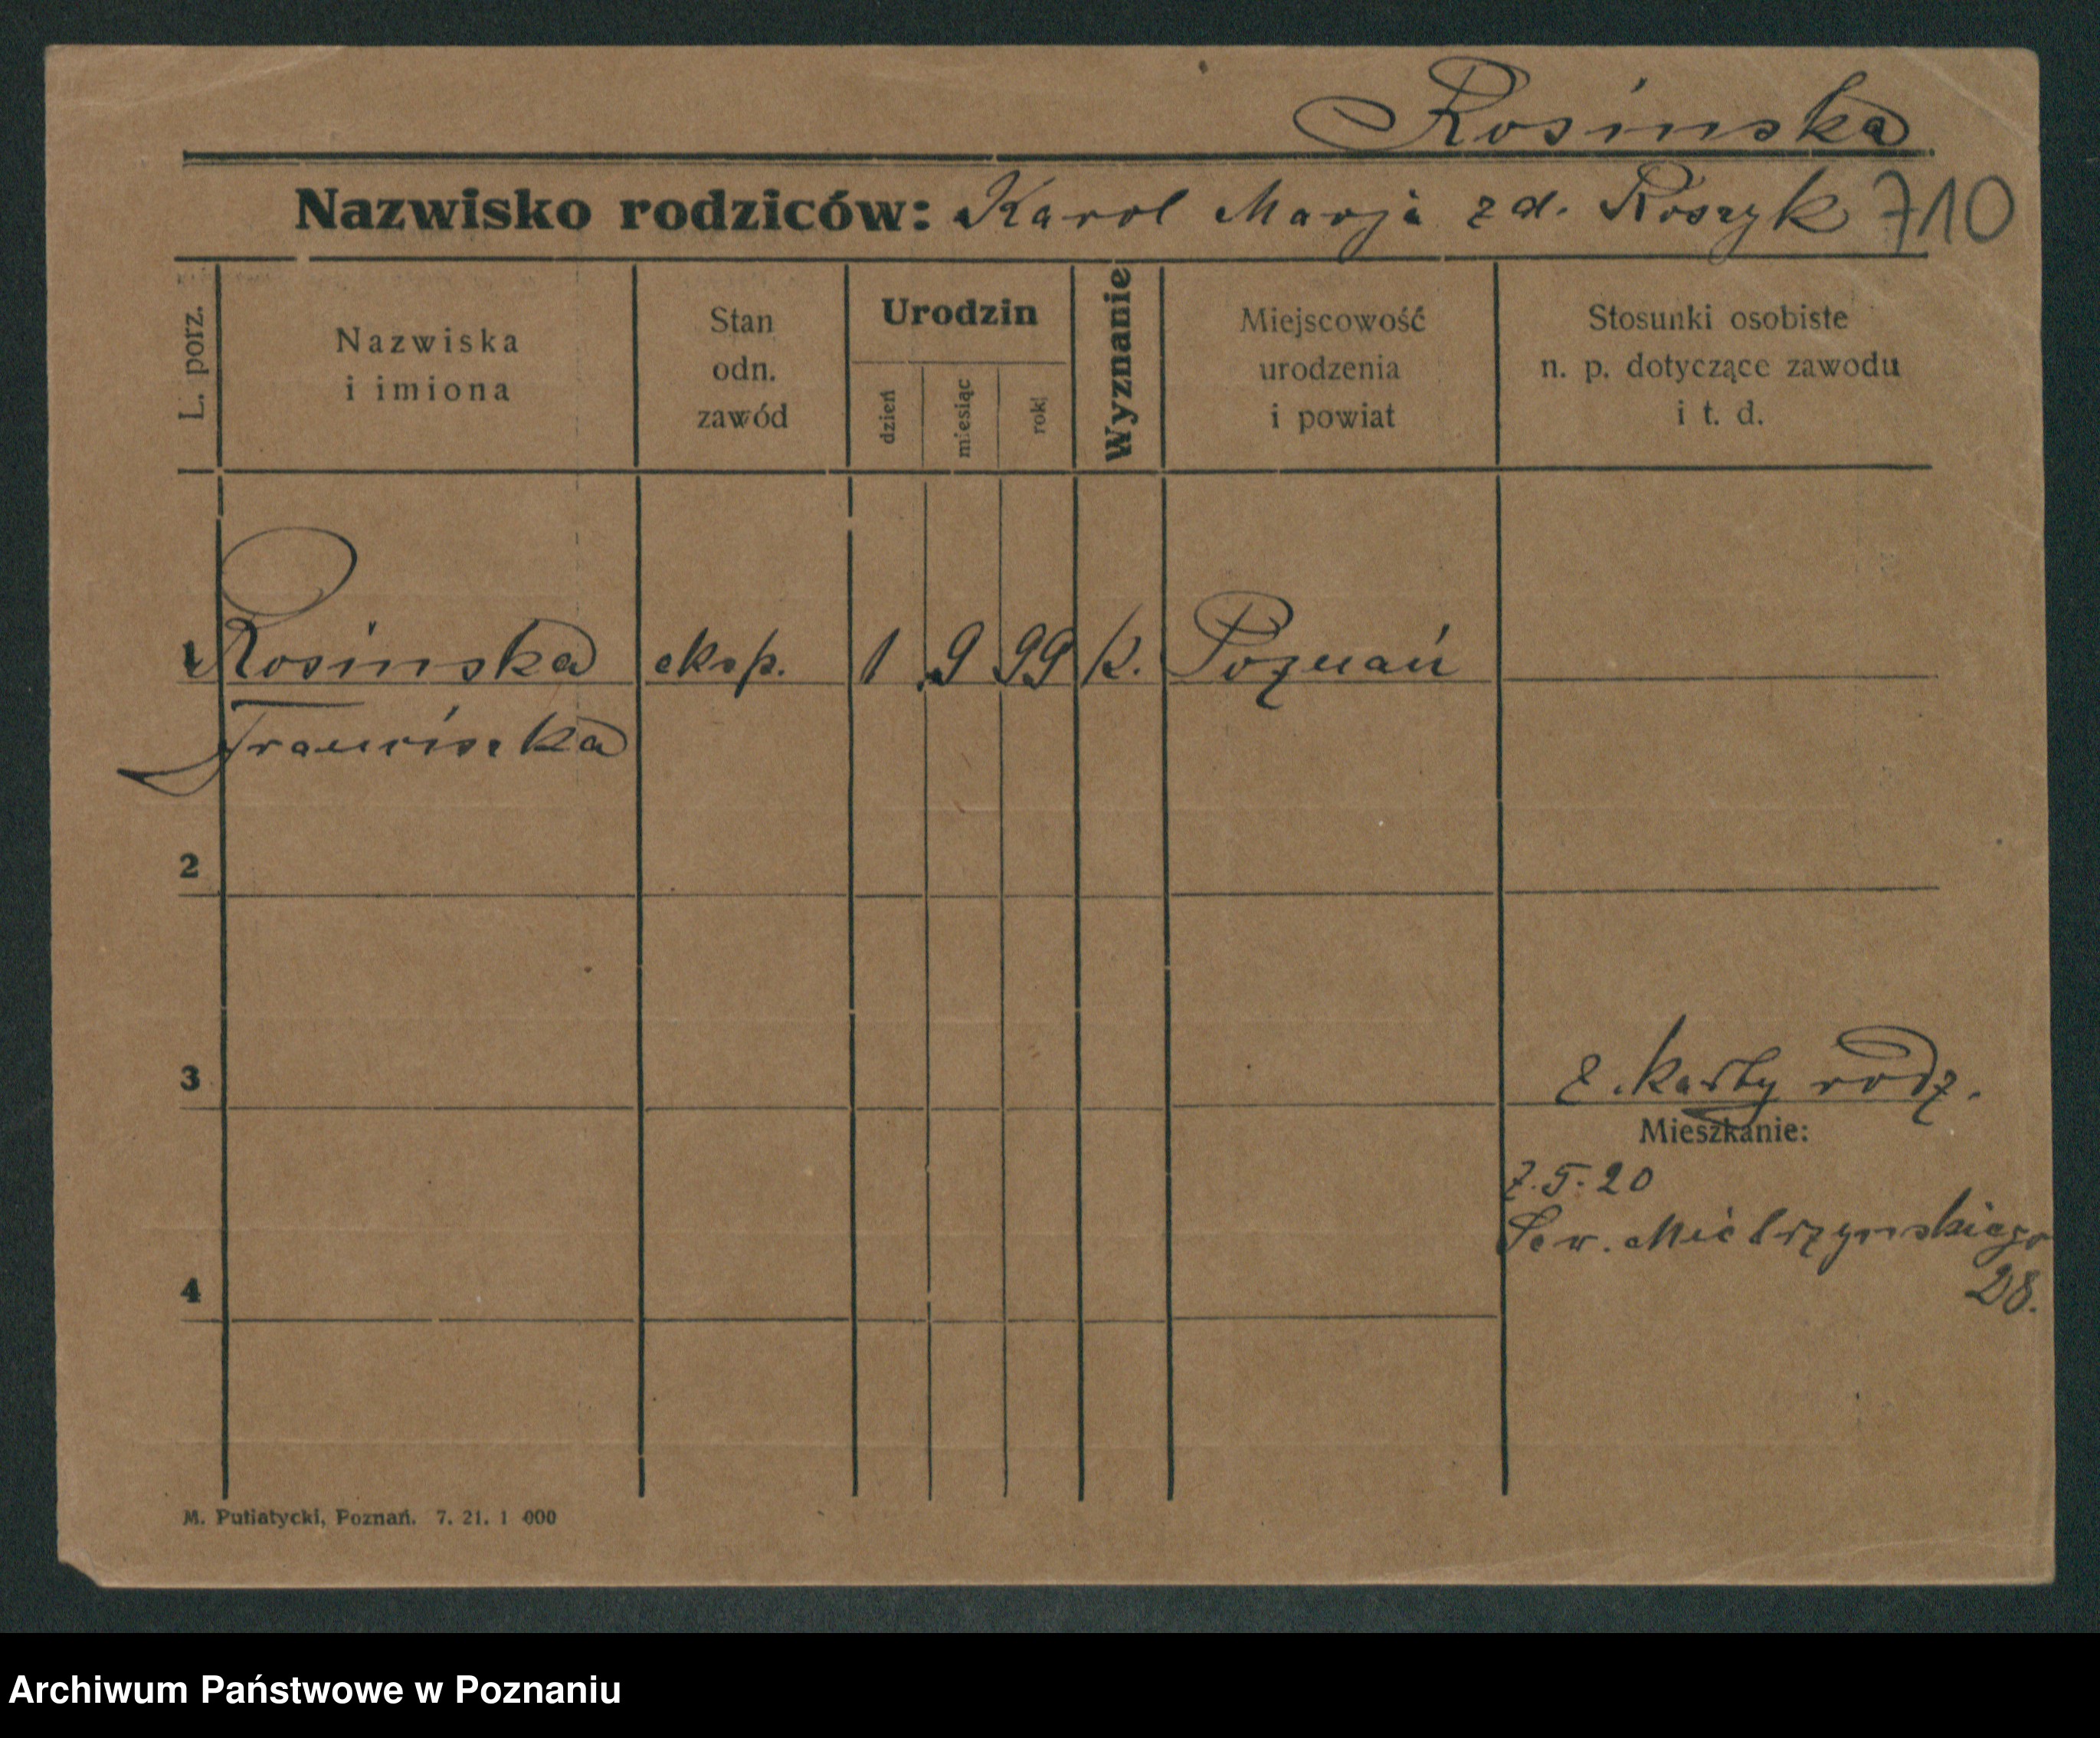 Rosinska
Nazwisko rodziców: Karol Marja zd. Roszyk 710
L. porz.
Nazwiska
i imiona
Stan
odn.
zawód
Urodzin
dzień
miesiąc
rok
Wyznanie
Miejscowość
urodzenia
i powiat
Stosunki osobiste
n. p. dotyczące zawodu
i t. d.
1 Rosinska eksp. 1 9 99 k. Poznań
Franciszka
2
3
z karty rodz.
Mieszkanie:
7.5.20
Sew. Mielżyńskiego
28.
4
M. Putiatycki, Poznań. 7. 21. 1 000
Archiwum Państwowe w Poznaniu